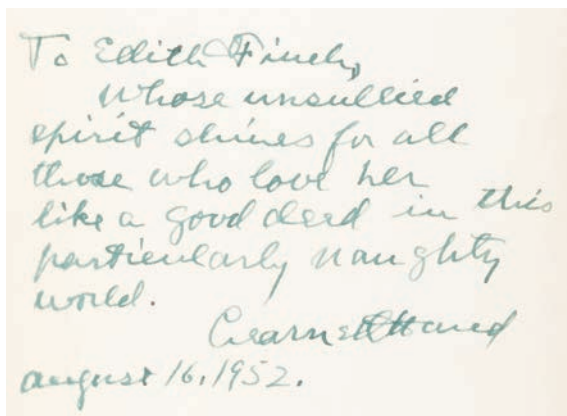 To Edith Finch,
Whose unsullied
spirit shines for all
those who love her
like a good deed in this
particularly naughty
world.
Learned Hand
august 16. 1952.